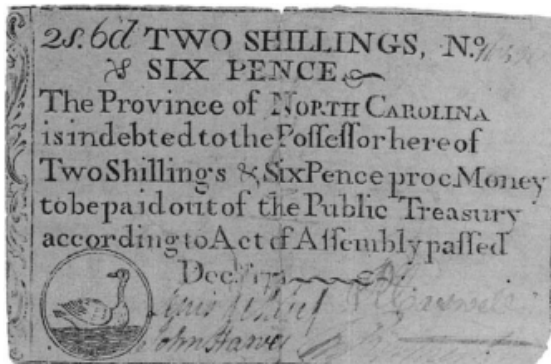 2s.6d TWO SHILLINGS, No.
& SIX PENCE
The Province of NORTH CAROLINA
is indebted to the Poſſeſſor hereof
Two Shillings & Six Pence proc Money
to be paid out of the Public Treasury
according to Act of Aſſembly paſſed
Decr. 1771
Lewis
John Harvey R Caswell